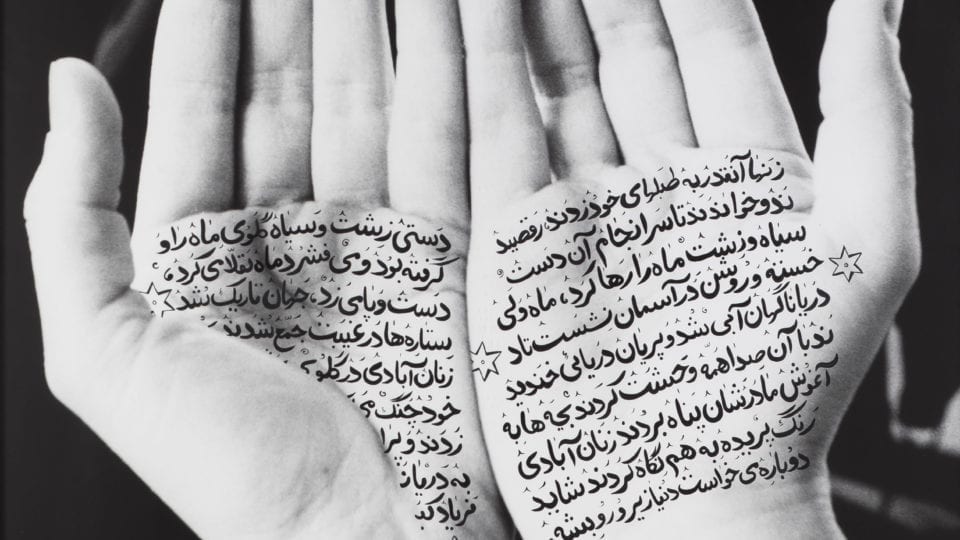 دستی زشت و سیاه گلوی ماه را و
گرفته بود و می فشرد ماه تقلا می کرد،
دست و پا می زد، جهان تاریک شد
ستاره ها در غیبت جمع شدند
زنان آبادی در گلوی
خود چنگ می
زدند و برا
به دریا
فریاد
زنها آنقدر به طبلهای خود زدند، رقصید
ند و خواندند تا سرانجام آن دست
سیاه و زشت ماه را رها کرد، ماه ولی
خسته و روشن در آسمان نشست تا د
دریا ناگهان آبی شد و پریان دریائی خندید
ند با آن صدا همه وحشت کردند بچه ها به
آغوش مادرشان پناه بردند زنان آبادی
رنگ پریده به هم نگاه کردند شاید
دوباره می خواست دنیا زیر و رو بشه